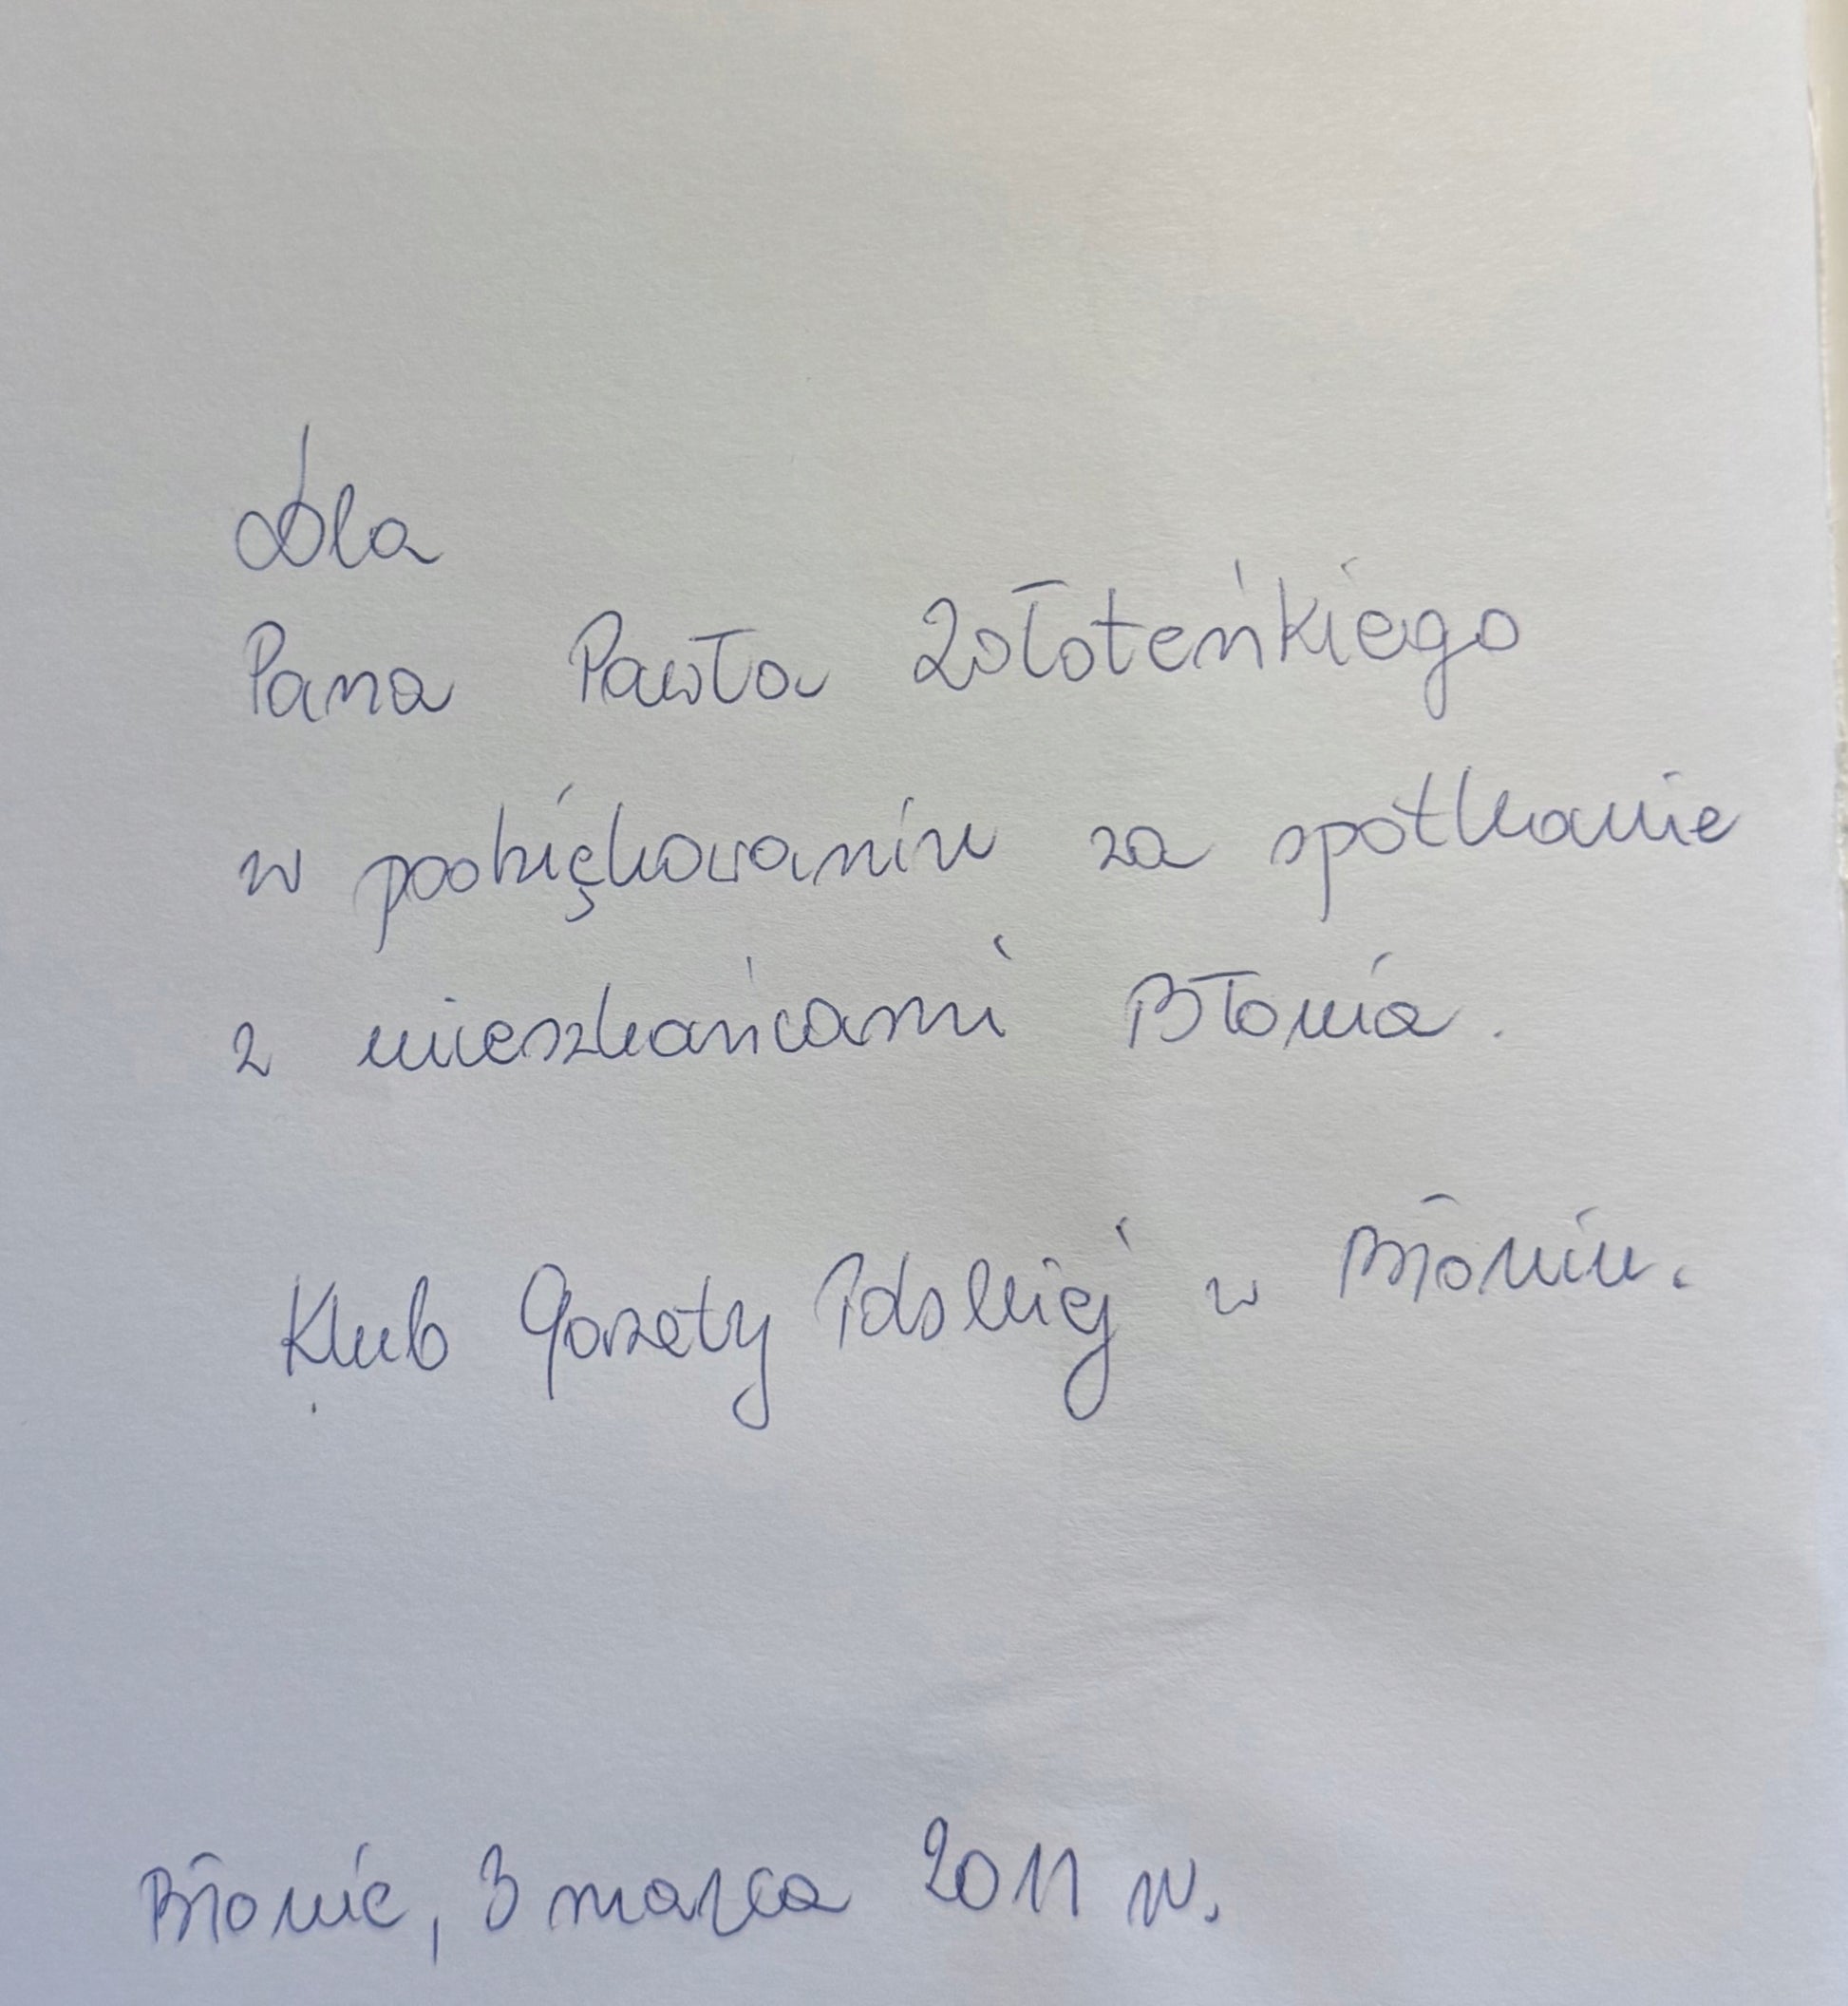 Dla
Pana Pawła Zołoteńkiego
w podziękowaniu za spotkanie
z mieszkańcami Błonia.
Klub Gazety Polskiej w Błoniu.
Błonie, 3 marca 2011 r.